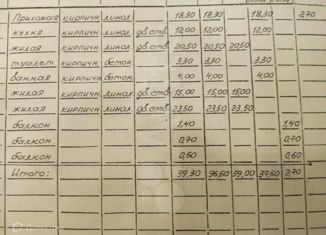 Прихожая кирпичн. линол 18,30 18,30 18,30 2,70
кухня кирпичн. линол дв.ств. 12,00 12,00 12,00
жилая кирпичн. линол дв.ств. 20,50 20,50 20,50
туалет кирпичн. бетон 3,30 3,30 3,30
ванная кирпичн. бетон 4,00 4,00 4,00
жилая кирпичн. линол дв.ств. 15,00 15,00 15,00
жилая кирпичн. линол дв.ств. 23,50 23,50 23,50
балкон 1,40 1,40
балкон 0,70 0,70
балкон 0,60 0,60
Итого: 99,30 96,60 59,00 37,60 2,70